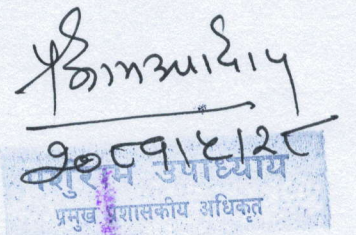 २०८१।५।२८
पशुराम उपाध्याय
प्रमुख प्रशासकीय अधिकृत